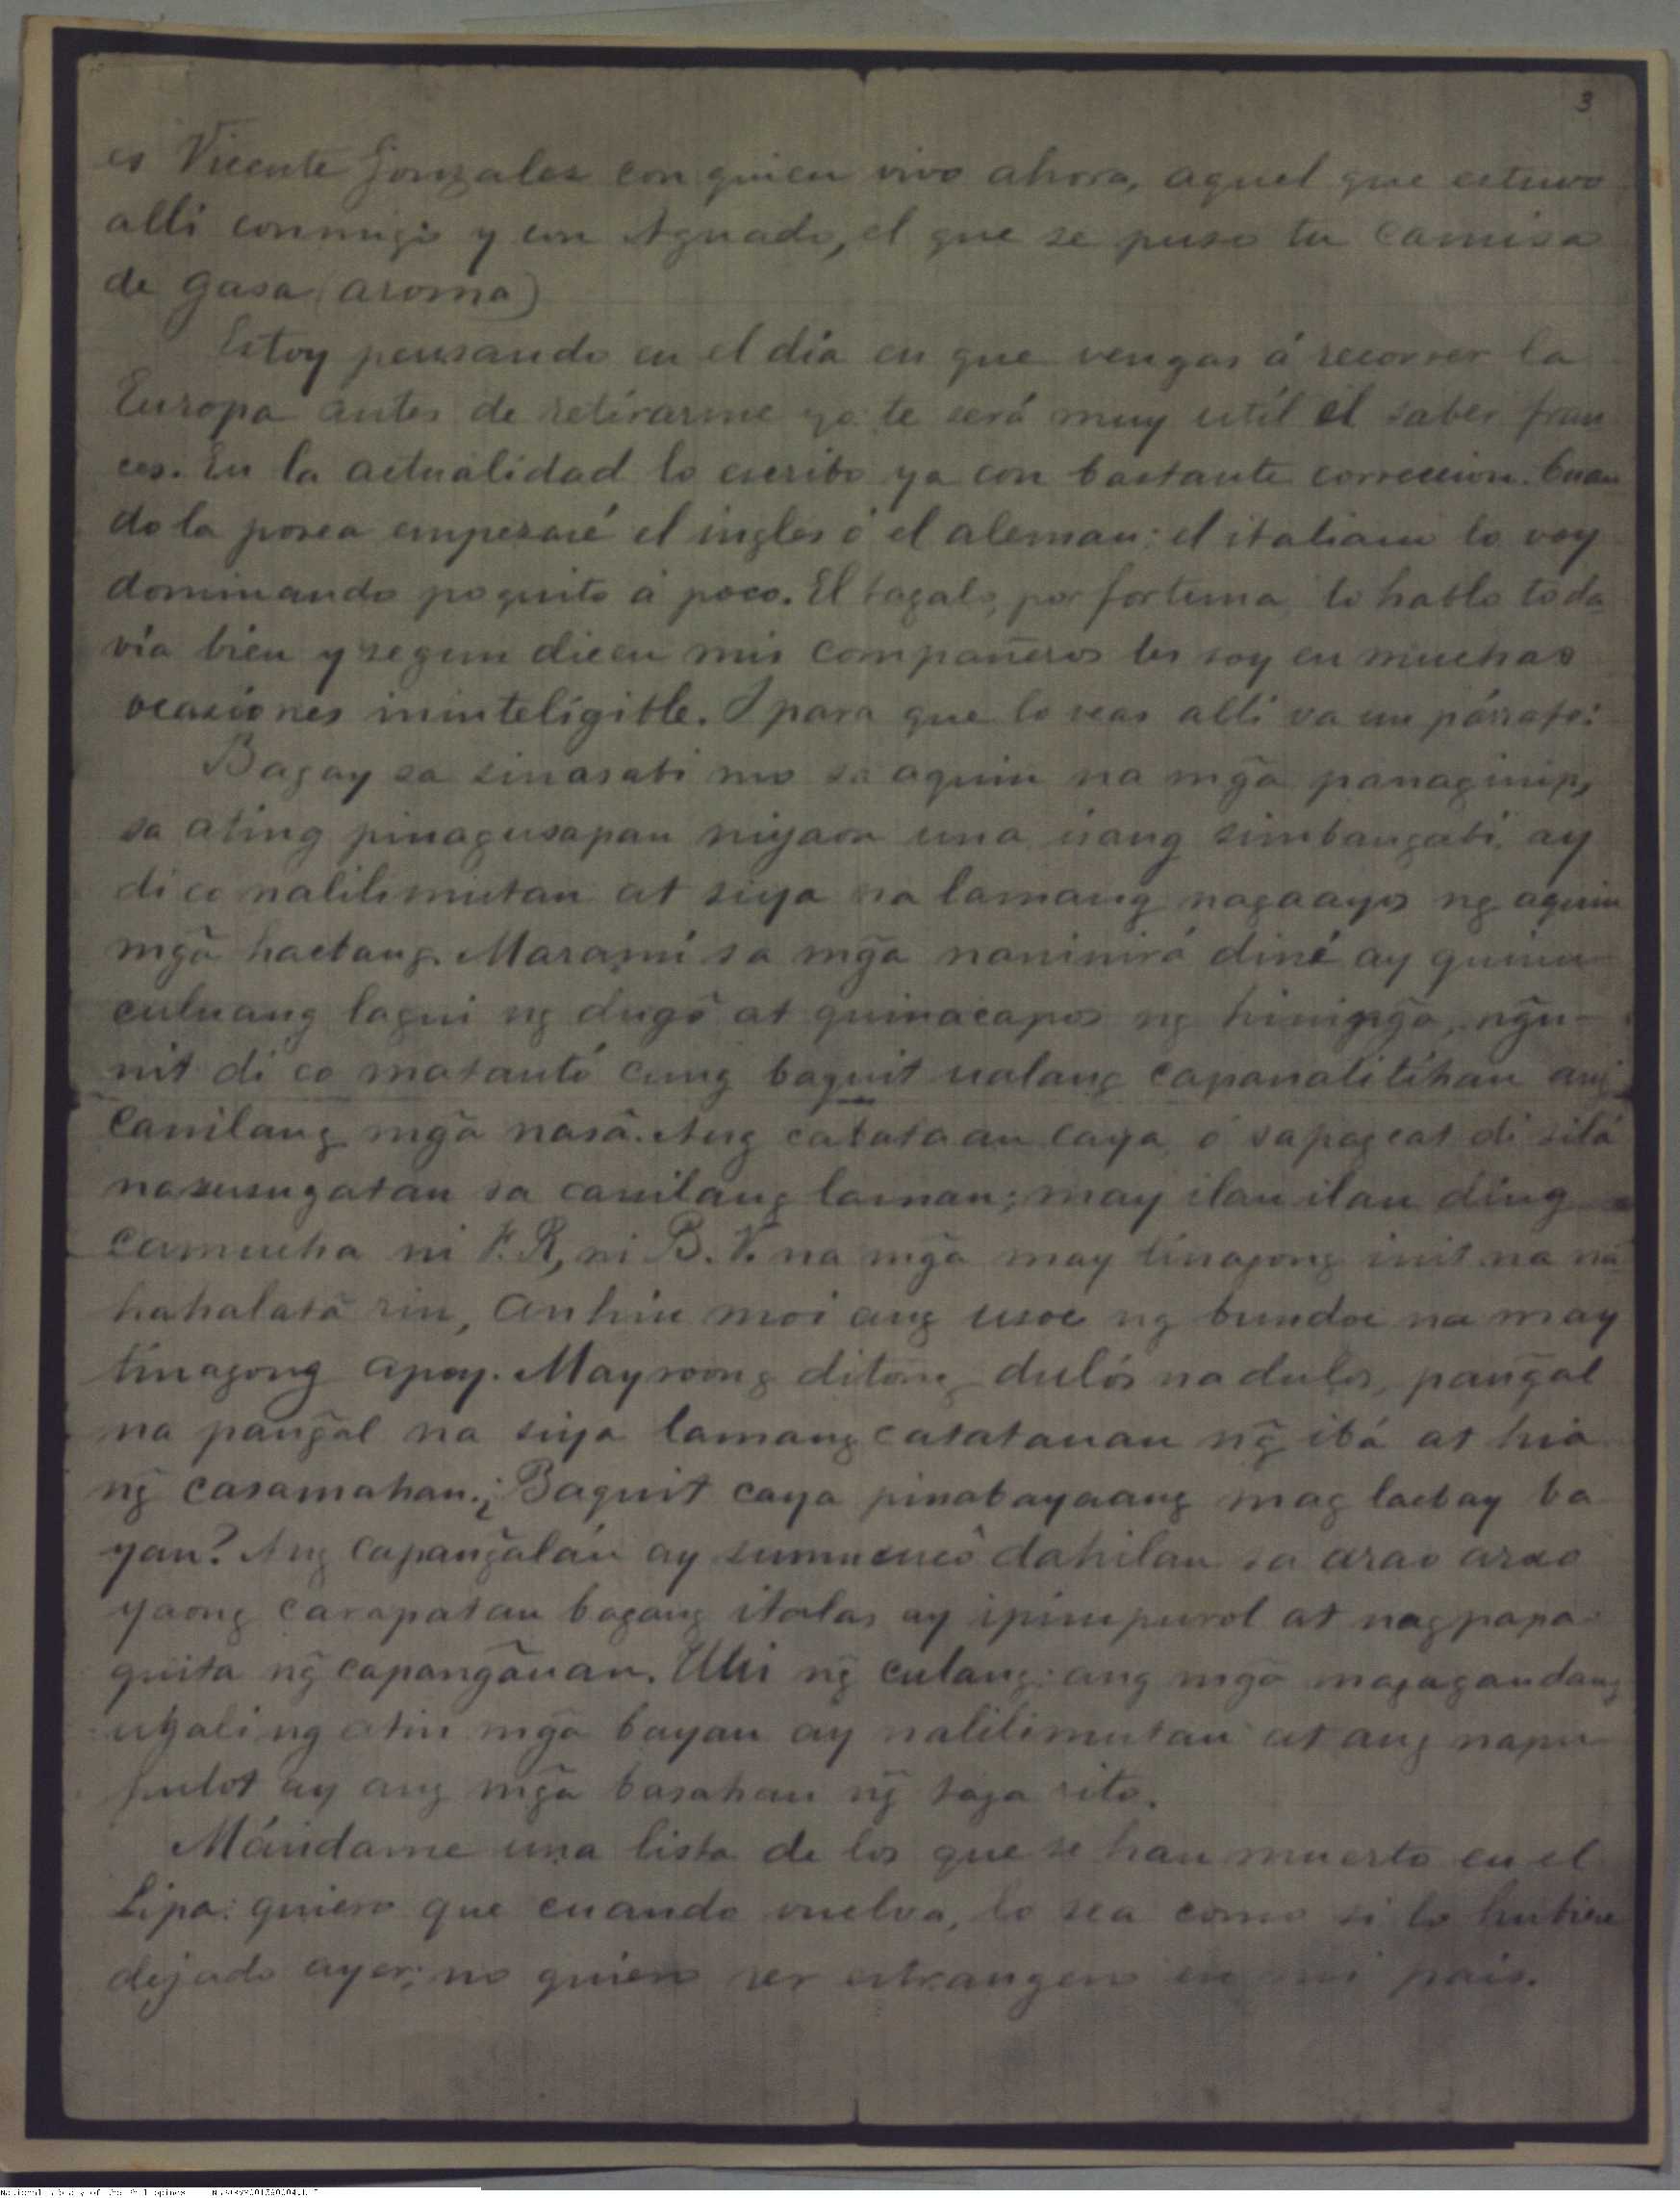 3
es Vicente Gonzalez con quien vivo ahora, aquel que estuvo
alli conmigo y con Aguado, el que se puso tu camisa
de gasa (aroma)
Estoy pensando en el dia en que vengas á recorrer la
Europa antes de retirarme yo te será muy util el saber fran
ces. En la actualidad lo escribo ya con bastante correccion. Cuan
do la posea empezaré el ingles ó el aleman: el italiano lo voy
dominando poquito á poco. El tagalo, por fortuna, lo hablo toda
vía bien y segun dicen mis compañeros les soy en muchas
ocasiones ininteligible. I para que lo veas alli va un párrafo:
Bagay sa sinasabi mo sa aquin na mg̃a panaginip,
sa ating pinagusapan niyaon una isang simbangabi, ay
di co nalilimutan at siya na lamang nagaayos ng aquin
mg̃a hacbang. Marami sa mg̃a naninirá diné ay quinu
culuang lagui ng dugô at quinacapos ng hining̃a, ng̃u-
nit di co matantó cung baquit ualang capanatilihan ang
canilang mg̃a nasâ. Ang cabataan caya, ó sapagcat di silá
nasusugatan sa canilang laman; may ilan ilan ding
camucha ni F. R, ni B. V. na mg̃a may tinagong init na na
hahalatâ rin, anhin moi ang usoc ng bundoc na may
tinagong apoy. Mayroong ditong dulós na dulos, pang̃al
na pang̃al na siya lamang catatauan ng̃ ibá at hia
ng̃ casamahan. ¿Baquit caya pinabayaang mag lacbay ba
yan? Ang capang̃alán ay sumusucó dahilan sa arao arao
yaong carapatan bagang italas ay ipinupurol at nagpapa
quita ng̃ capang̃auan. Ulii ng̃ culang: ang mg̃a magagandang
ugali ng atin mg̃a bayan ay nalilimutan at ang napu
pulot ay ang mg̃a basahan ng̃ taga rito.
Mándame una lista de los que se han muerto en el
Lipa: quiero que cuando vuelva, lo sea como si lo hubiese
dejado ayer; no quiero ser estrangero en mi pais.